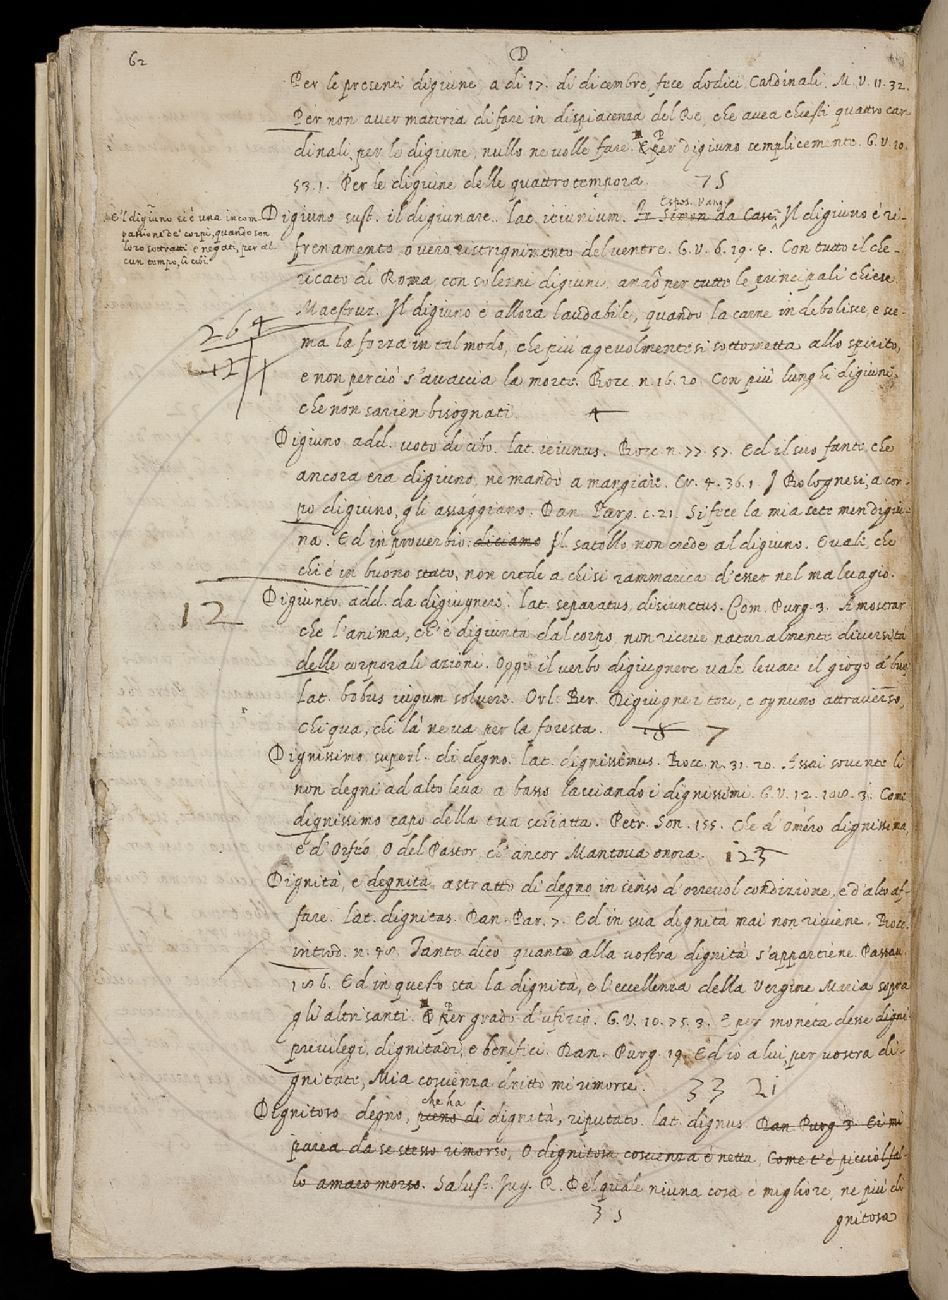 62
D
Per le presenti digiune, a di 17. di dicembre, fece dodici Cardinali. M. V. 11. 32.
Per non aver materia di fare in dispiacenza del Re, che avea chiesti quattro car-
dinali, per le digiune, nullo ne volle fare. E per digiuno semplicemente. G. V. 10.
53. 1. Per le digiune delle quattro tempora. 75
Digiuno sust. il digiunare. lat. ieiunium. Fr. Simon da Casc. Espos. Vang. Il digiuno è ri-
E'l digiuno si è una incom
passione de' corpi, quando son
loro sottratti e negati, per al
cun tempo, li cibi.
frenamento, o vero ristrignimento del ventre. G. V. 6. 19. 4. Con tutto il che-
ricato di Roma, con solenni digiuni, andò per tutte le principali chiese.
Maestruz. Il digiuno è allora laudabile, quando la carne indebolisce, e sce-
264
121
ma la forza in tal modo, che più agevolmente si sottometta allo spirito,
e non perciò s'avaccia la morte. Bocc. n. 16. 20. Con più lunghi digiuni,
che non sarien bisognati. 4
Digiuno add. voto di cibo. lat. ieiunus. Bocc. n. 77. 57. Ed il suo fante, che
ancora era digiuno, ne mandò a mangiare. Cr. 4. 36. 1. I Bolognesi, a cor-
po digiuno, gli assaggiano. Dan. Purg. c. 21. Si fece la mia sete men digiu-
na. Ed in proverbio: diciamo Il satollo non crede al digiuno. E vale, che
chi è in buono stato, non crede a chi si rammarica d'esser nel malvagio.
12
Digiunto. add. da digiugnere. lat. separatus, disiunctus. Com. Purg. 3. A mostrar
che l'anima, ch'è digiunta dal corpo, non riceve naturalmente diversità
delle corporali azioni. Oggi il verbo digiugnere vale levare il giogo a' buoi
lat. bobus iugum solvere. Orl. Ber. Digiugne i tori, e ognuno attraverso,
chi qua, chi là ne va per la foresta. 18 7
Dignissimo superl. di degno. lat. dignissimus. Bocc. n. 31. 20. Assai sovente li
non degni ad alto leva a basso lasciando i dignissimi. G. V. 12. 108. 3. Come
dignissimo capo della tua schiatta. Petr. Son. 155. Che d'Omero dignissima,
e d'Orfeo, O del Pastor, ch'ancor Mantova onora. 123
Dignità, e degnità. astratto di degno, in senso d'orrevol condizione, e d'alto af-
fare. lat. dignitas. Dan. Par. 7. Ed in sua dignità mai non riviene. Bocc.
introd. n. 48. Tanto dico quanto alla vostra dignità s'appartiene. Passav.
186. Ed in questo sta la dignità, e l'eccellenza della Vergine Maria sopra
gli altri santi. Per grado d'ufizio. G. V. 10. 75. 3. E per moneta desse digni-
privilegi, dignitadi, e benifici. Dan. Purg. 19. Ed io a lui, per vostra di-
gnitate, Mia coscienza dritto mi rimorse. 33 21
Degnitoso degno, pieno che ha di dignità, riputato. lat. dignus. Dan. Purg. 3. Ei mi
parea da se stesso rimorso, O dignitosa coscienza e netta, Come t'è picciol fal-
lo amaro morso. Salust. Iug. R. Del quale niuna cosa è migliore, ne più di
35
gnitosa